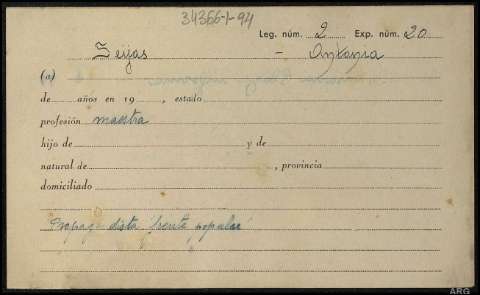 34366-1-94
Leg. núm. 2 Exp. núm. 20
Seijas - Antonia
(a)
de años en 19 , estado
profesión maestra
hijo de y de
natural de , provincia
domiciliado
Propagandista "frente popular"
ARG